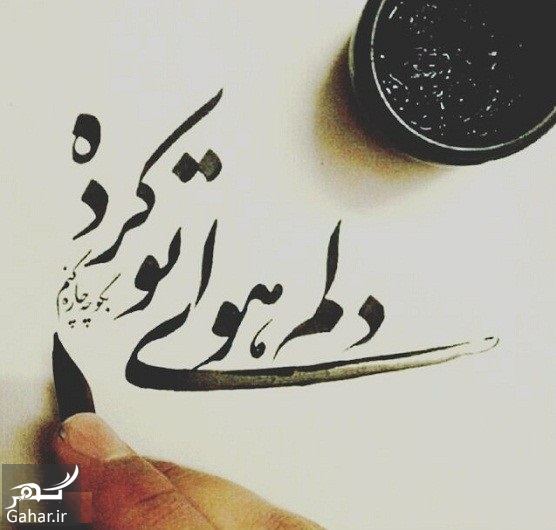 دلم هوای تو کرده
بگو چه چاره کنم
گهر
Gahar.ir